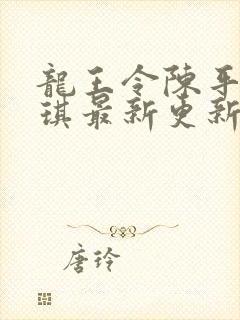 龍王令陳平
琪最新更新
唐玲